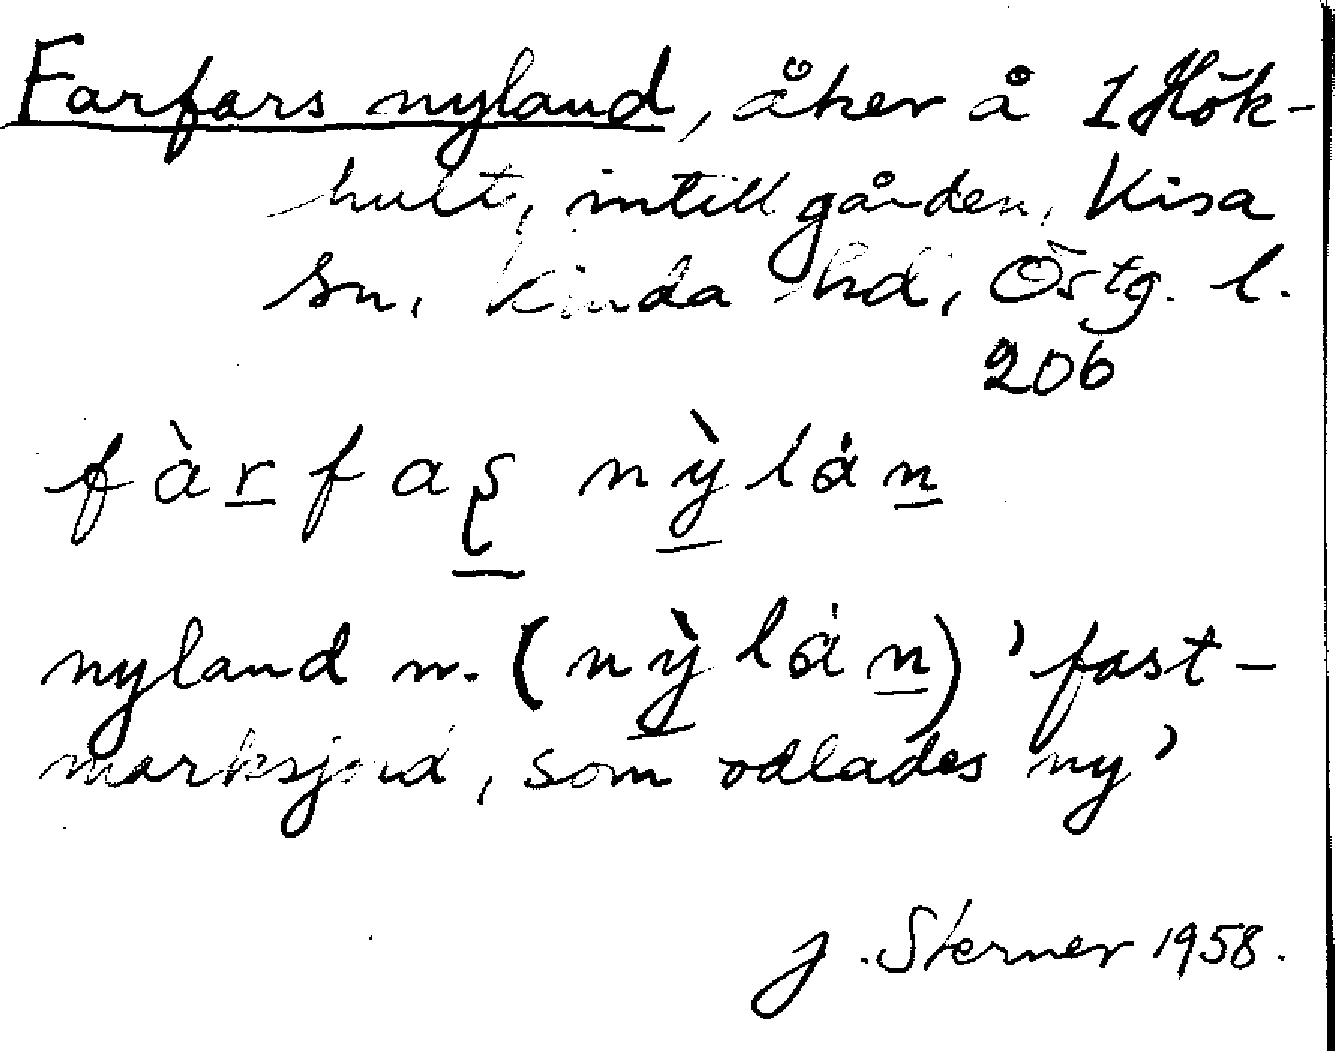 Farfars nyland, åker å 1 Hök-
hult, intill gården, Kisa
sn, Kinda hd, Östg. l.
206
fàrfaʂ nỳlán
nyland n. (nỳlán) 'fast-
marksjord, som odlades ny'
J. Sterner 1958.